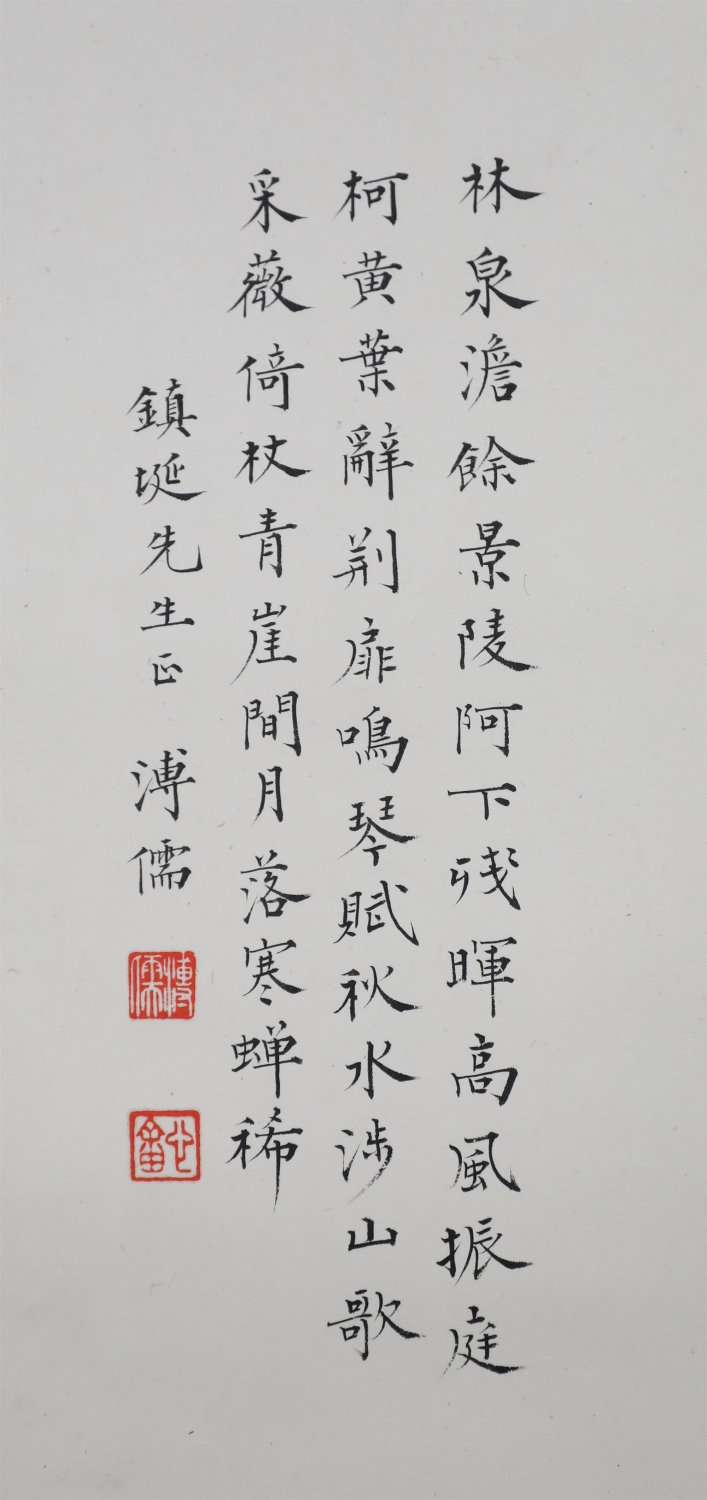 林泉澹餘景陵阿下殘暉高風振庭
柯黃葉辭荆扉鳴琴賦秋水涉山歌
采薇倚杖青崖間月落寒蟬稀
鎮埏先生正 溥儒
溥儒
心畬